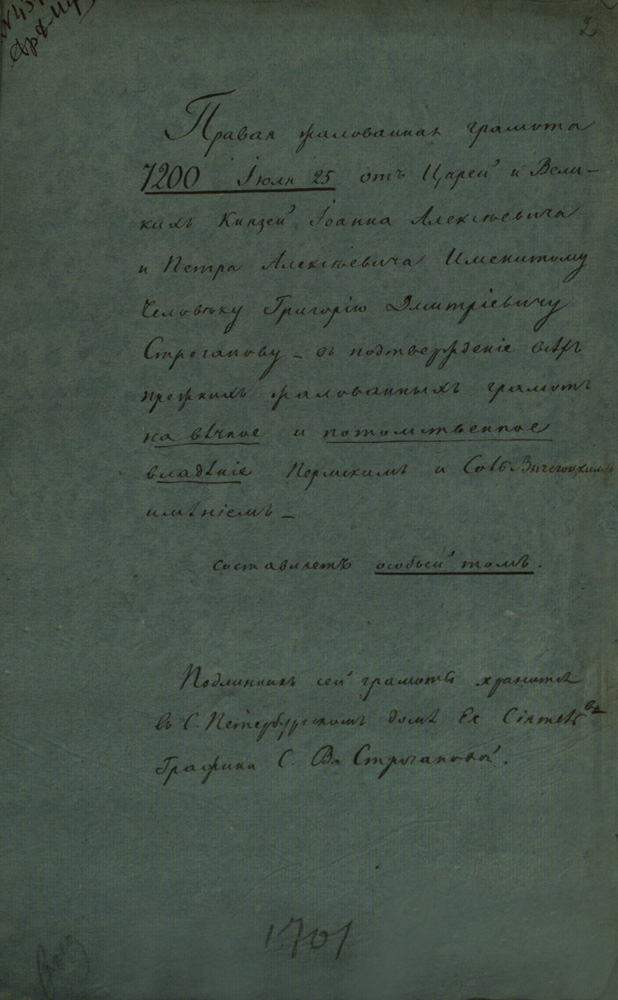 2
Правая жалованная грамота
7200 Іюля 25 отъ Царей и Вели-
кихъ Князей Іоанна Алексѣевича
и Петра Алексѣевича Именитому
Человѣку Григорію Дмитріевичу
Строганову – въ подтвержденіе всѣхъ
прежнихъ жалованныхъ грамотъ
на вѣчное и потомственное
владѣніе Пермскимъ и
имѣніемъ –
составляетъ особый томъ.
Подлинникъ сей грамоты хранится
въ С. Петербургскомъ домѣ Ея Сіятель ва
Графини С. В. Строгановой.
1701